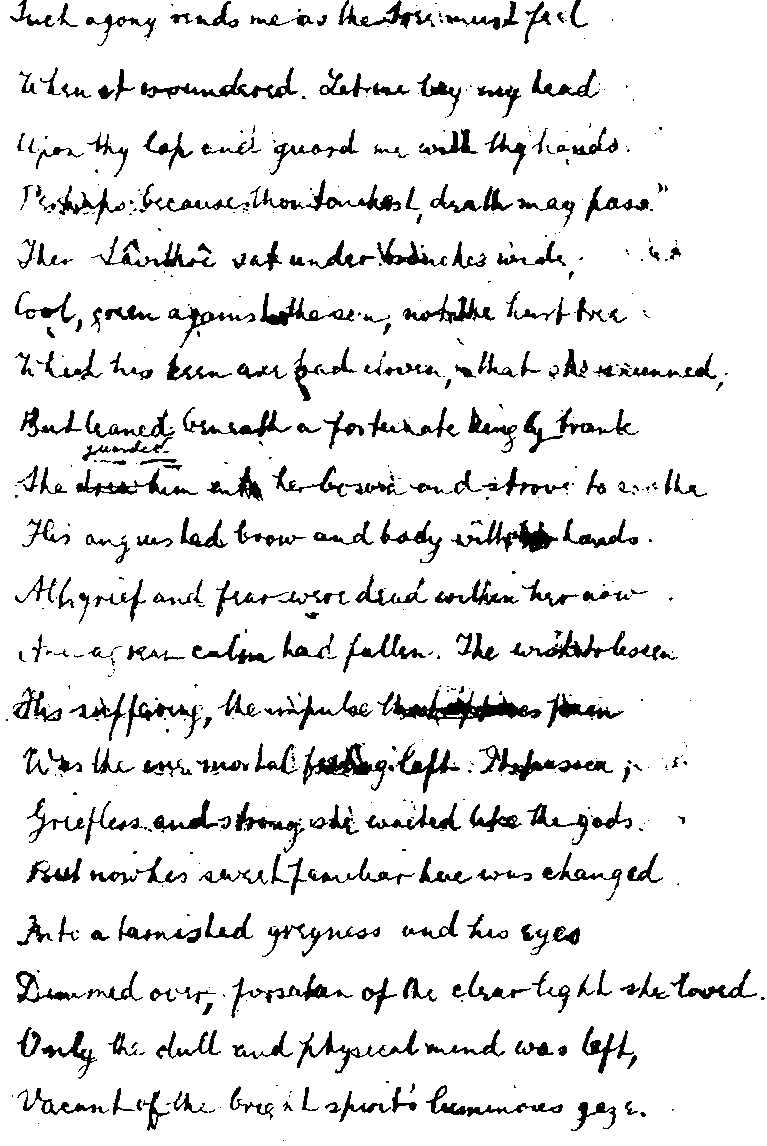 Such agony rends me as the tree must feel
When it is sundered. Let me lay my head
Upon thy lap and guard me with thy hands.
Perhaps because thou touchest, death may pass."
Then Sâvithrî sat under branches wide,
Cool, green against the sun, not the hurt tree
Which his keen axe had cloven, that she shunned;
But leaned beneath a fortunate kingly trunk
guarded
She drew him into her bosom and strove to soothe
His anguished brow and body with hands.
All grief and fear were dead within her now
And a great calm had fallen. The wish to lessen
His suffering, the impulse that opposes pain
Was the one mortal feeling left. It passed;
Griefless and strong she waited like the gods.
But now his sweet familiar hue was changed
Into a tarnished greyness and his eyes
Dimmed over, forsaken of the clear light she loved.
Only the dull and physical mind was left,
Vacant of the bright spirit's luminous gaze.